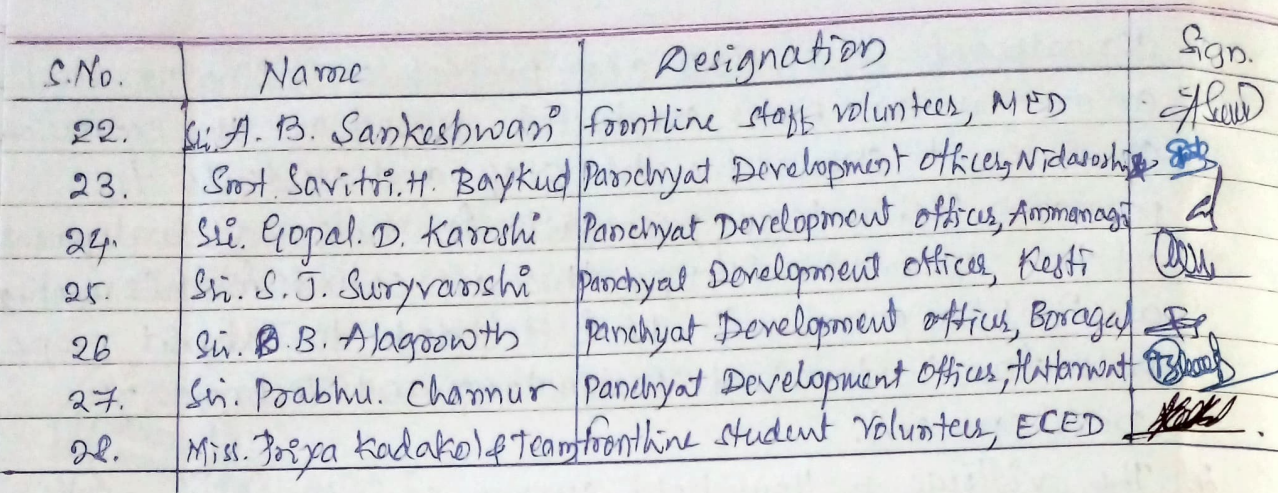 S.No. Name Designation Sign.
22. Sri. A. B. Sankeshwari frontline staff volunteer, MED
23. Smt. Savitri. H. Baykud Panchyat Development Officer, Nidasoshi
24. Sri. Gopal. D. Karoshi Panchyat Development officer, Ammanagi
25. Sri. S. J. Suryvanshi Panchyat Development officer, Kesti
26 Sri. B. B. Alagrowth Panchyat Development officer, Boragal
27. Sri. Prabhu. Channur Panchyat Development Officer,
28. Miss. Priya Kadakol & Team frontline student Volunteer, ECED